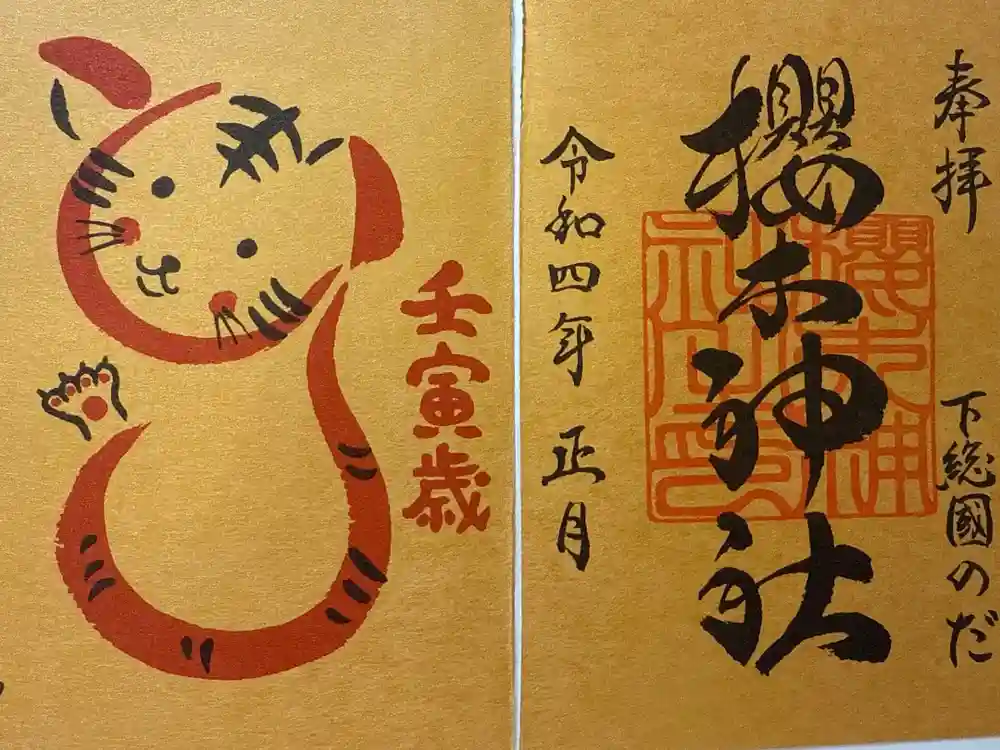 奉拝
下総國のだ
櫻木神社
令和四年正月
壬寅歳